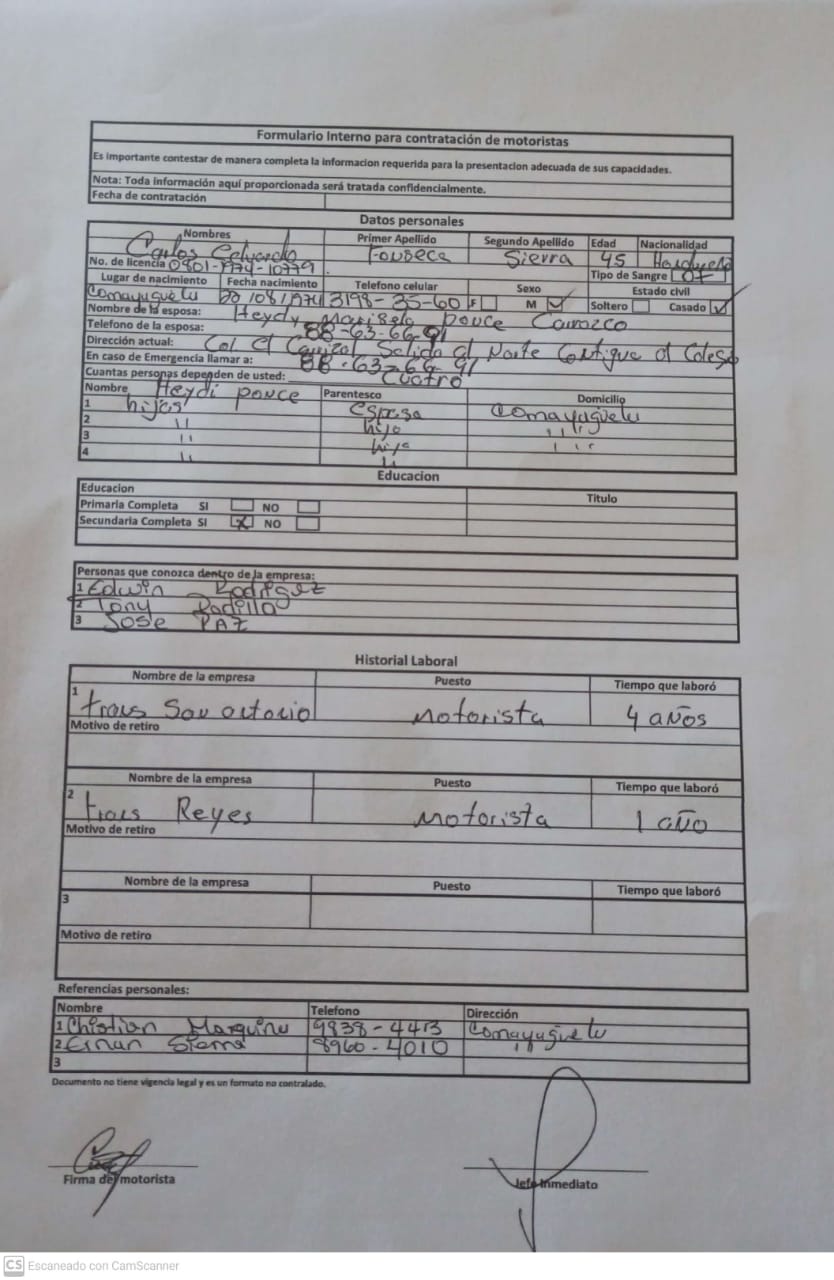 Formulario Interno para contratación de motoristas
Es importante contestar de manera completa la informacion requerida para la presentacion adecuada de sus capacidades.
Nota: Toda información aquí proporcionada será tratada confidencialmente.
Fecha de contratación
Datos personales
Nombres Primer Apellido Segundo Apellido Edad Nacionalidad
Carlos Fonseca Sierra 45
No. de licencia 0801-1974-10779 Tipo de Sangre O+
Lugar de nacimiento Fecha nacimiento Telefono celular Sexo Estado civil
Comayaguela 1974 3198-35-60 F M Soltero Casado
Nombre de la esposa: Heydy ponce
Telefono de la esposa: 88-63-66-91
Dirección actual: Col el Salida al Norte Contiguo al
En caso de Emergencia llamar a: 88-63-66-91
Cuantas personas dependen de usted: Cuatro
Nombre Parentesco Domicilio
Heydi ponce
1 hijos esposa Comayaguela
2 '' hijo ''
3 '' hijo ''
4 '' ''
Educacion
Educacion Titulo
Primaria Completa SI NO
Secundaria Completa SI X NO
Personas que conozca dentro de la empresa:
1 Edwin Rodrigez
2 Tony Padilla
3 Jose PAZ
Historial Laboral
Nombre de la empresa Puesto Tiempo que laboró
1 trans San antonio Motorista 4 años
Motivo de retiro
Nombre de la empresa Puesto Tiempo que laboró
2 trans Reyes Motorista 1 año
Motivo de retiro
Nombre de la empresa Puesto Tiempo que laboró
3
Motivo de retiro
Referencias personales:
Nombre Telefono Dirección
1 Chistian 9938-4413 Comayaguela
2 8960-4010 ''
3
Documento no tiene vigencia legal y es un formato no contralado.
Firma de motorista Jefe Inmediato
CS Escaneado con CamScanner